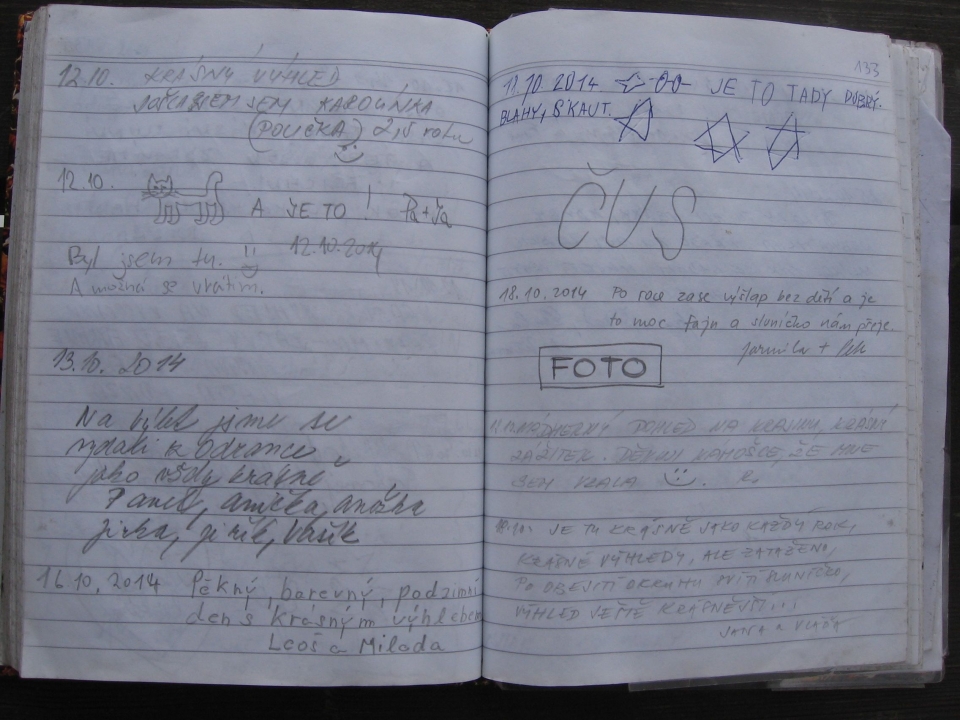 12.10. KRÁSNÝ VÝHLED
JSEM KAROLÍNKA
(POLIČKA) 2,5 roku
12.10. A JE TO! Pa + Ja
12.10.2014
Byl jsem tu.
A možná se vrátím.
13.10. 2014
Na výlet jsme se
vydali k Odrance
jako vždy krásné
Pavel, anička, anežka
jirka, jiřík, Vašík
16.10.2014 Pěkný, barevný, podzimní
den s krásným výhledem
Leoš a Milada
133
17.10.2014 JE TO TADY DOBRÝ.
BLAHY, SKAUT.
ČUS
18.10.2014 Po roce zase výšlap bez dětí a je
to moc fajn a sluníčko nám přeje.
Jarmila + Petr
FOTO
NÁDHERNÝ POHLED NA KRAJINU, KRÁSNÝ
ZÁŽITEK. DĚKUJI ŽE MNE
SEM VZALA :-). R.
JE TU KRÁSNĚ JAKO KAŽDÝ ROK,
KRÁSNÉ VÝHLEDY, ALE ZATAŽENO,
PO OBEJITÍ OKRUHU SVÍTÍ SLUNÍČKO,
VÝHLED JEŠTĚ KRÁSNĚJŠÍ...
JANA A VLAĎA